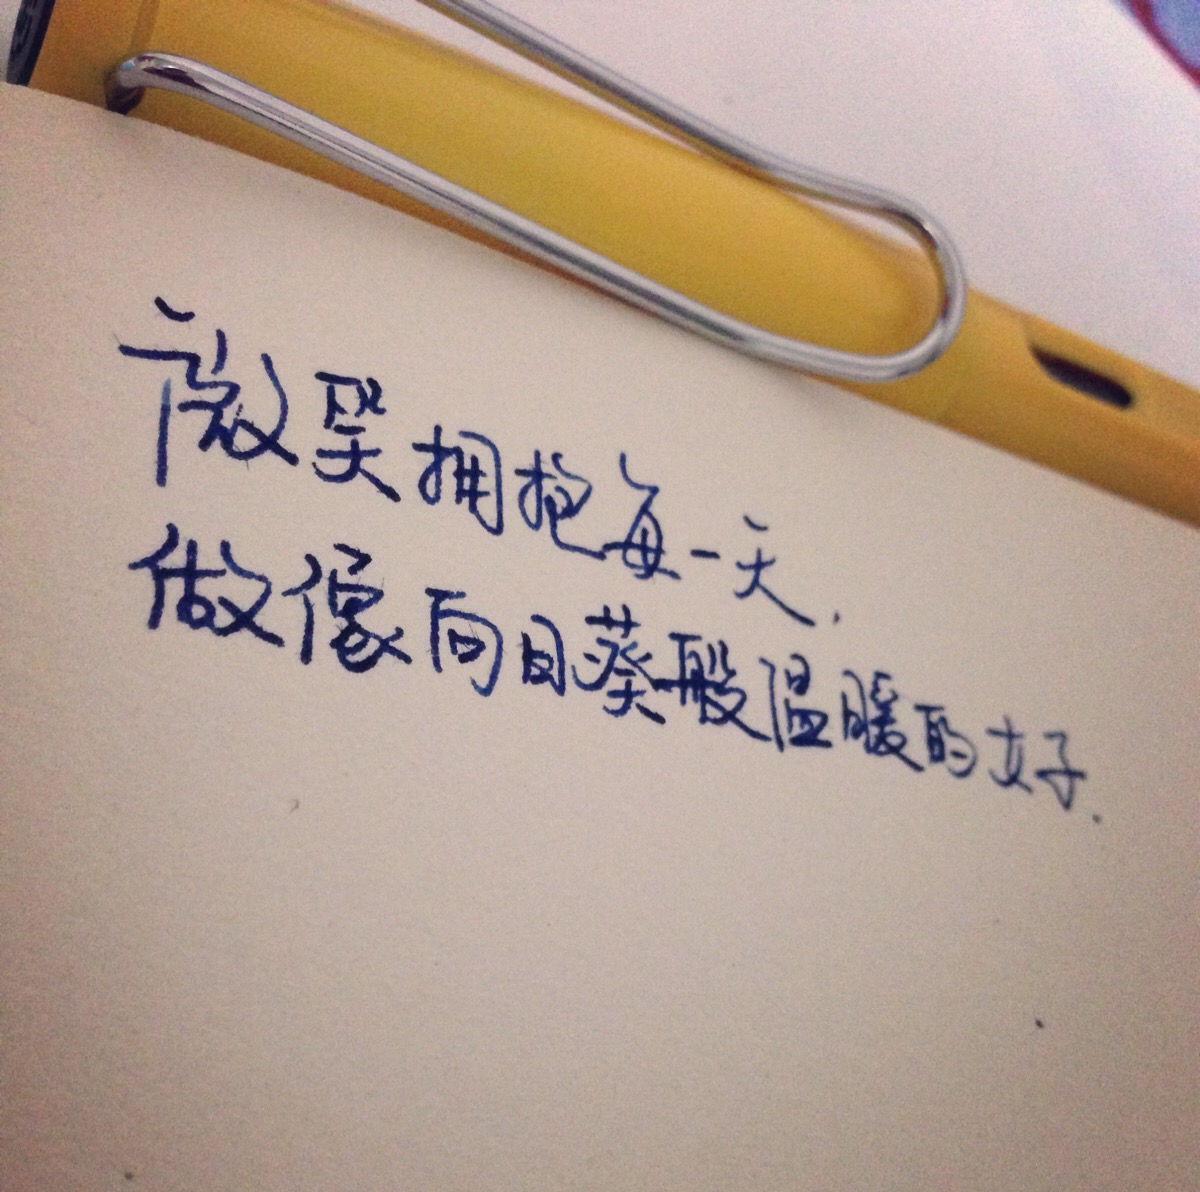 微笑拥抱每一天.
做像向日葵般温暖的女子.